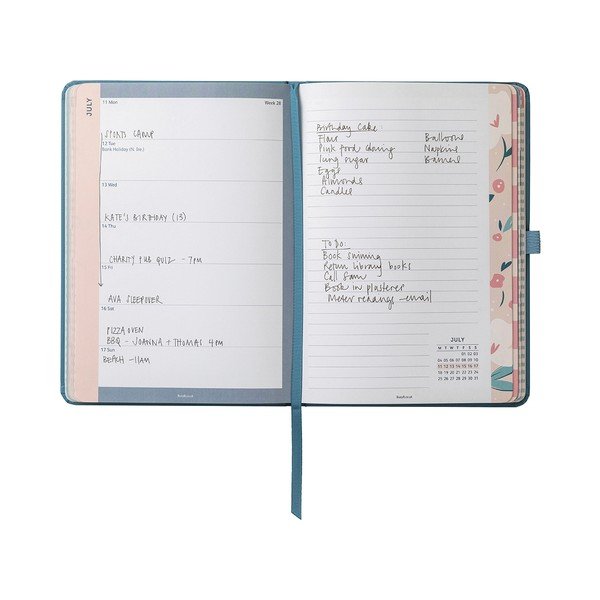 JULY
11 Mon
Week 28
SPORTS CAMP
12 Tue
Bank Holiday (N. Ire.)
13 Wed
KATE'S BIRTHDAY (13)
14 Thu
CHARITY PUB QUIZ - 7pm
15 Fri
AVA SLEEPOVER
16 Sat
PIZZA OVEN
BBQ - JOANNA + THOMAS 4 PM
17 Sun
BEACH - 11AM
Birthday Cake:
Flour
Pink food
Icing sugar
Eggs
Almonds
Candles
Balloons
Napkins
Banners
To Do:
Book
Return library books
Call Sam
Book in plasterer
Meter readings - email
JULY
M T W T F S S
01 02 03
04 05 06 07 08 09 10
11 12 13 14 15 16 17
18 19 20 21 22 23 24
25 26 27 28 29 30 31